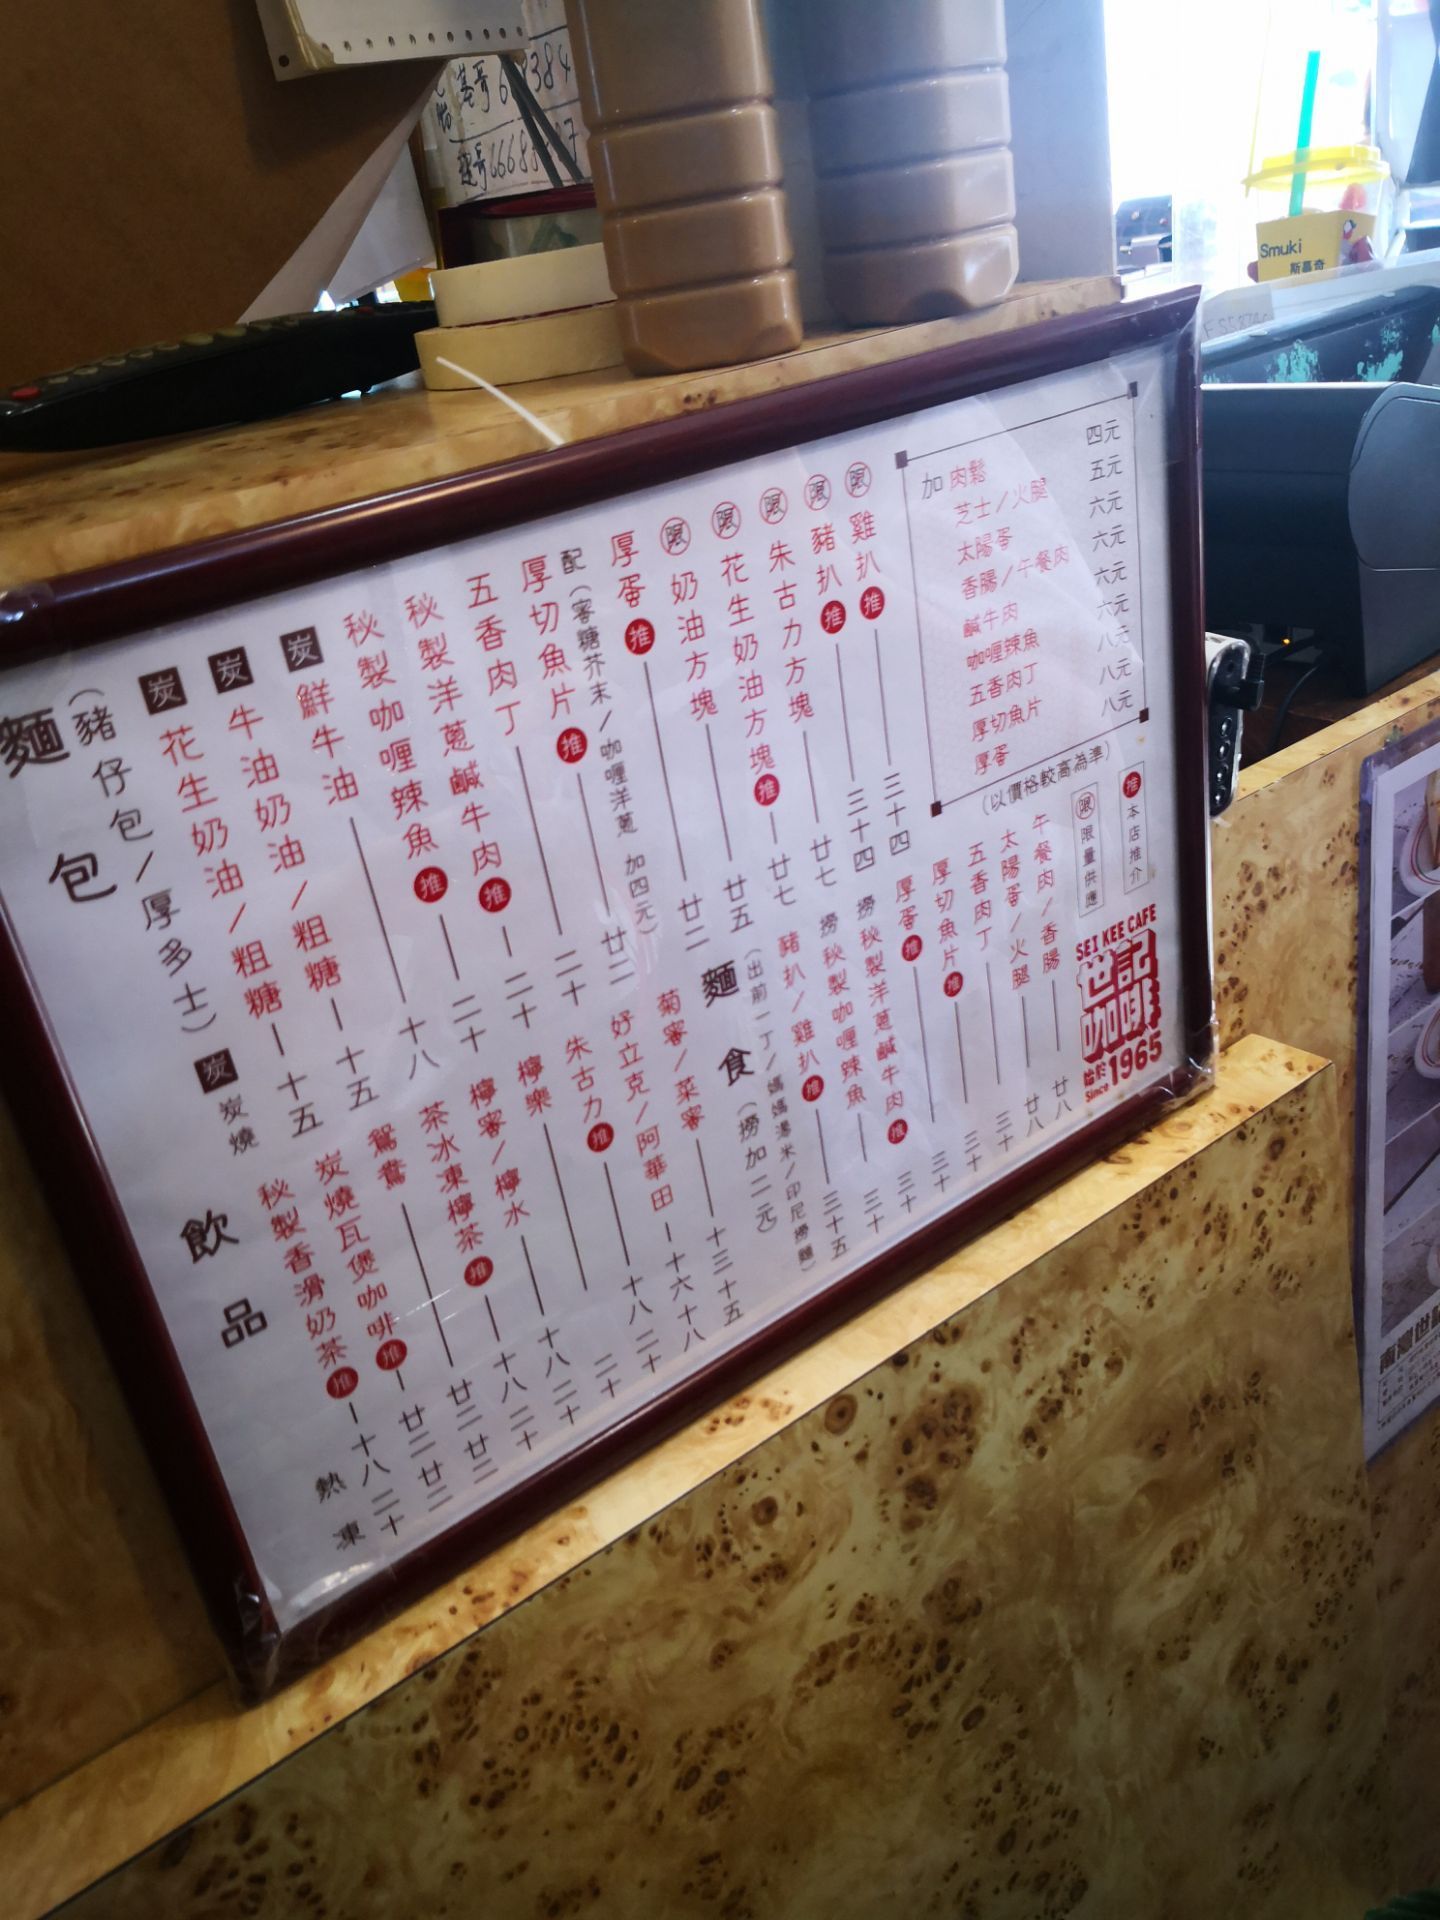 麵包
(豬仔包/厚多士) 炭 炭燒
炭 花生奶油/粗糖 十五
炭 牛油奶油/粗糖 十五
炭 鮮牛油 十八
秘製咖喱辣魚 推 二十
秘製洋蔥鹹牛肉 推 二十
五香肉丁 二十
厚切魚片 推 廿二
配(蜜糖芥末/咖喱洋蔥 加四元)
厚蛋 推 廿二
限 奶油方塊 廿五
限 花生奶油方塊 推 廿七
限 朱古力方塊 廿七
限 豬扒 推 三十四
限 雞扒 推 三十四
加 肉鬆 四元
芝士/火腿 五元
太陽蛋 六元
香腸/午餐肉 六元
鹹牛肉 六元
咖喱辣魚 六元
五香肉丁 八元
厚切魚片 八元
厚蛋 八元
(以價格較高為準)
飲品
熱 凍
秘製香滑奶茶 推 十八 二十
炭燒瓦煲咖啡 推 廿二 廿二
鴛鴦 廿二 廿二
茶冰凍檸茶 推 十八 二十
檸蜜/檸水 十八 二十
檸樂 二十
朱古力 推 十八 二十
好立克/阿華田 十六 十八
菊蜜/菜蜜 十三 十五
麵食 (撈加二元)
(出前一丁/媽媽湯米/印尼撈麵)
豬扒/雞扒 推 三十五
撈 秘製咖喱辣魚 三十
撈 秘製洋蔥鹹牛肉 推 三十
厚蛋 推 三十
厚切魚片 推 三十
五香肉丁 三十
太陽蛋/火腿 廿八
午餐肉/香腸 廿八
限 限量供應
推 本店推介
SEI KEE CAFE
世記
咖啡
始於
Since 1965
Smuki
斯慕奇